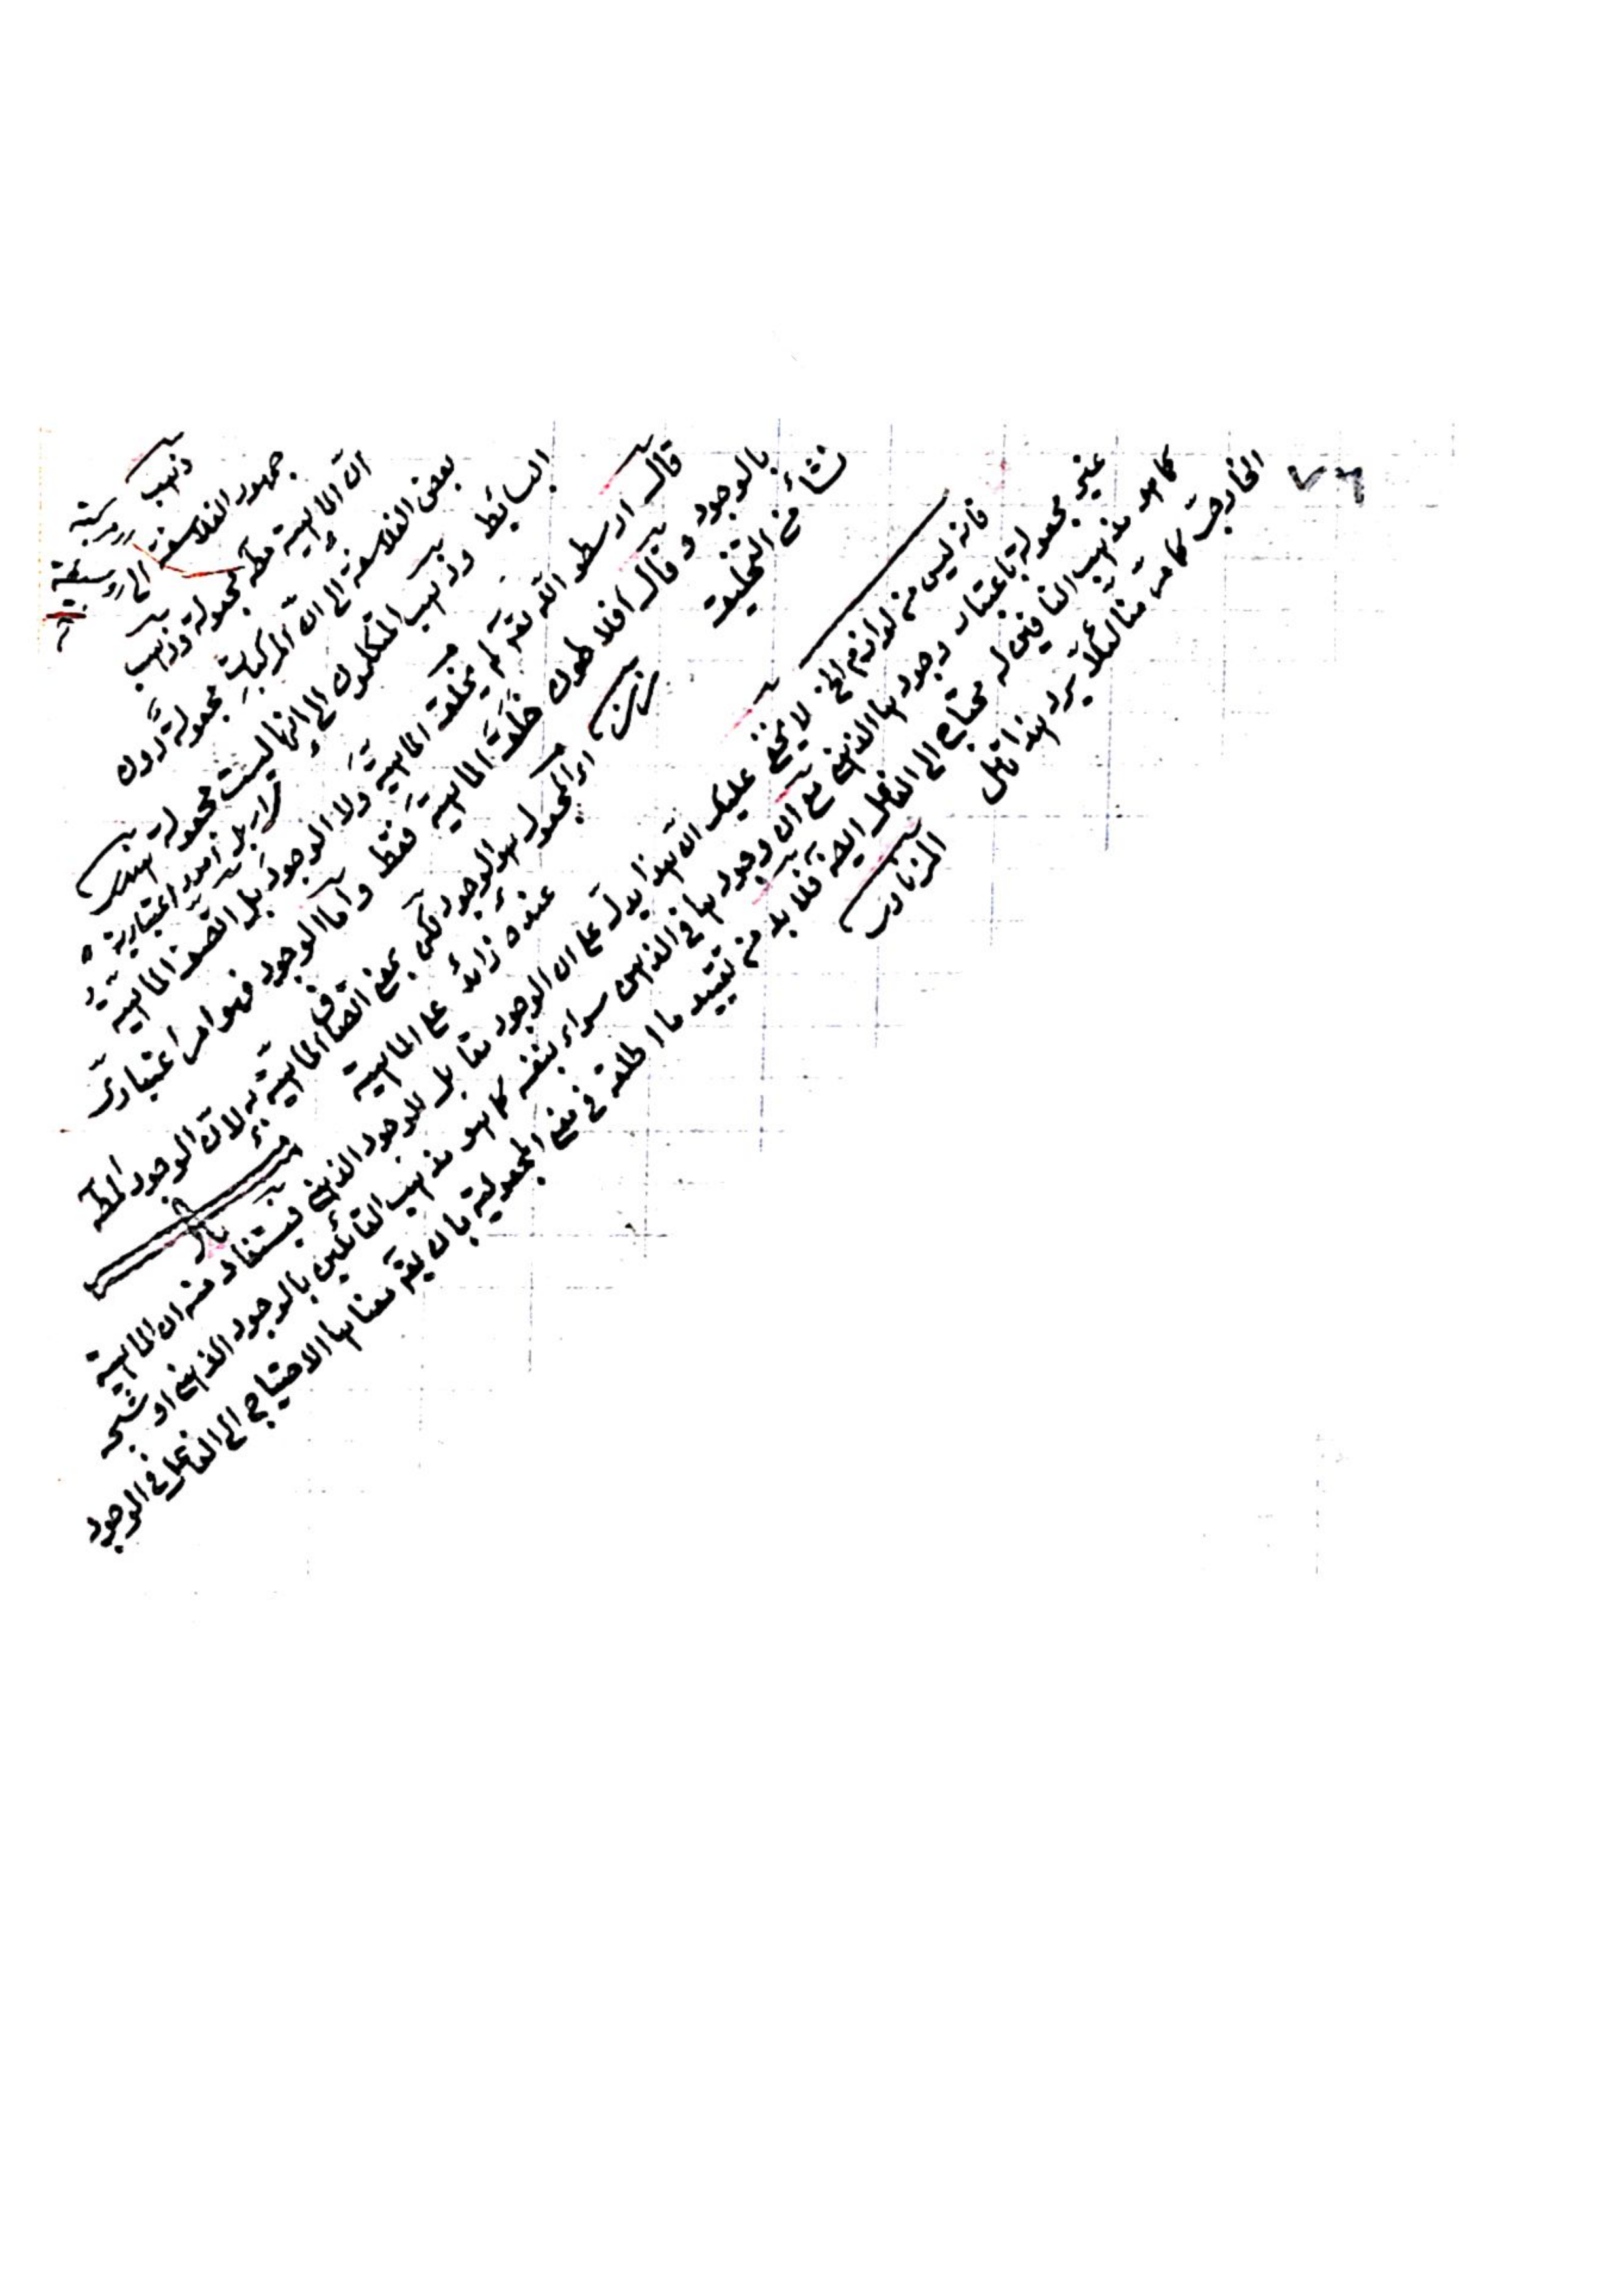 ٧٦
ذهب
جمهور الفلاسفة الى
ان الماهية مط مجعولة وذهب
بعض الفلاسفة الى ان المركبات مجعولة دون
البسائط وذهب المتكلمون الى انها ليست مجعولة
بل امور اعتبارية
قال ارسطو الله تع لم يخلق الماهية ولا الوجود بل اتصف الماهية
بالوجود وقال افلاطون خلق الماهية فقط واما الوجود فهو امر اعتبارى
نشأ من التخليق
اى المجعول هو الوجود لكن بمعنى اتصاف الماهية به لان الوجود المط
عنده زائد على الماهية
فانه ليس من لوازم الخ لا يخفى عليك ان هذا يدل على ان الوجود مقابل للوجود الذهنى فيستفاد منه ان الماهية
غير مجعولة باعتبار وجودها الذهنى مع ان وجودها فى الذهن سواء بنفسه كما هو مذهب القائلين بالوجود الذهنى او بشبحه
كما هو مذهب النافين له محتاج الى الفاعل ايضا فلا بد من تقييد ما اطلقه فى نفى المجعولية بان يق معناها الاحتياج الى الفاعل فى الوجود
الخارجى كما مر منا لئلا يرد هذا تأمل